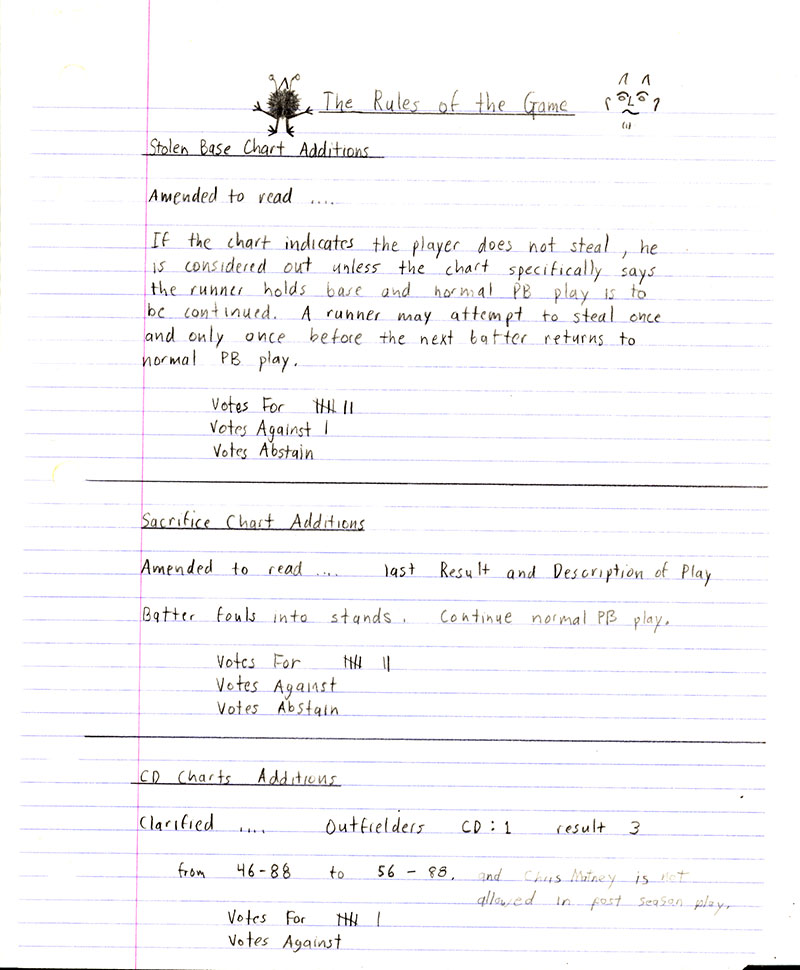 The Rules of the Game
Stolen Base Chart Additions
Amended to read ....
If the chart indicates the player does not steal, he
is considered out unless the chart specifically says
the runner holds base and normal PB play is to
be continued. A runner may attempt to steal once
and only once before the next batter returns to
normal PB play.
Votes For 𝍸 ||
Votes Against |
Votes Abstain
Sacrifice Chart Additions
Amended to read .... last Result and Description of Play
Batter fouls into stands. Continue normal PB play.
Votes For 𝍸 ||
Votes Against
Votes Abstain
CD Charts Additions
Clarified .... Outfielders CD:1 result 3
from 46-88 to 56-88. and Chris is not
allowed in post season play.
Votes For 𝍸 |
Votes Against